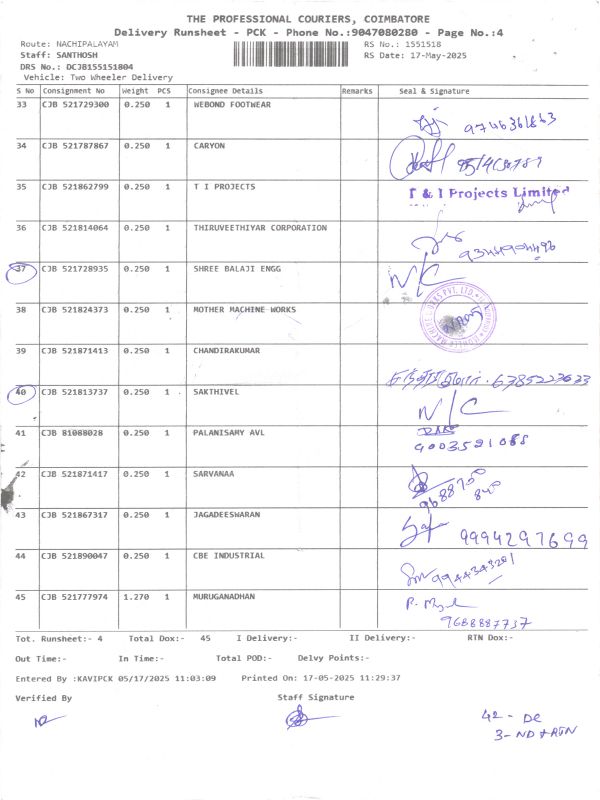 THE PROFESSIONAL COURIERS, COIMBATORE
Delivery Runsheet - PCK - Phone No.:9047080280 - Page No.:4
Route: NACHIPALAYAM RS No.: 1551518
Staff: SANTHOSH RS Date: 17-May-2025
DRS No.: DCJB155151804
Vehicle: Two Wheeler Delivery
S No Consignment No Weight PCS Consignee Details Remarks Seal & Signature
33 CJB 521729300 0.250 1 WEBOND FOOTWEAR
34 CJB 521787867 0.250 1 CARYON
35 CJB 521862799 0.250 1 T I PROJECTS T & I Projects Limited
36 CJB 521814064 0.250 1 THIRUVEETHIYAR CORPORATION
37 CJB 521728935 0.250 1 SHREE BALAJI ENGG N/C
38 CJB 521824373 0.250 1 MOTHER MACHINE WORKS
39 CJB 521871413 0.250 1 CHANDIRAKUMAR 6385223633
40 CJB 521813737 0.250 1 SAKTHIVEL N/C
41 CJB 81088028 0.250 1 PALANISAMY AVL 9003521088
42 CJB 521871417 0.250 1 SARVANAA
43 CJB 521867317 0.250 1 JAGADEESWARAN 9994297699
44 CJB 521890047 0.250 1 CBE INDUSTRIAL 9944343201
45 CJB 521777974 1.270 1 MURUGANADHAN 9688887737
Tot. Runsheet:- 4 Total Dox:- 45 I Delivery:- II Delivery:- RTN Dox:-
Out Time:- In Time:- Total POD:- Delvy Points:-
Entered By :KAVIPCK 05/17/2025 11:03:09 Printed On: 17-05-2025 11:29:37
Verified By Staff Signature
42 - DC
3- ND + RTN